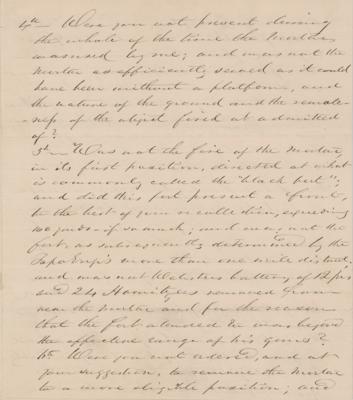 4th Were you not present during
the whole of the time the Mortar
was used by me; and was not the
Mortar as efficiently served as it could
have been without a platform, and
the nature of the ground and the remote-
ness of the object fired at admitted
of?
5th Was not the fire of the Mortar,
in its first position, directed at what
is commonly called the "black fort";
and did this fort present a front,
to the best of your recollection, exceeding
100 yards if so much; and was not the
fort, as subsequently determined by the
Topo Eng's more than one mile distant,
and was not Websters battery of
and 24 Howitzers removed from
near the Mortar and for the reason
that the fort alluded to was beyond
the effective range of his guns?
6th Were you not ordered, and at
your suggestion, to remove the Mortar
to a more eligible position; and